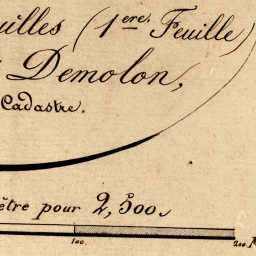 uilles (1ere Feuille)
Demolon,
Cadastre.
être pour 2,500.
100. 200.